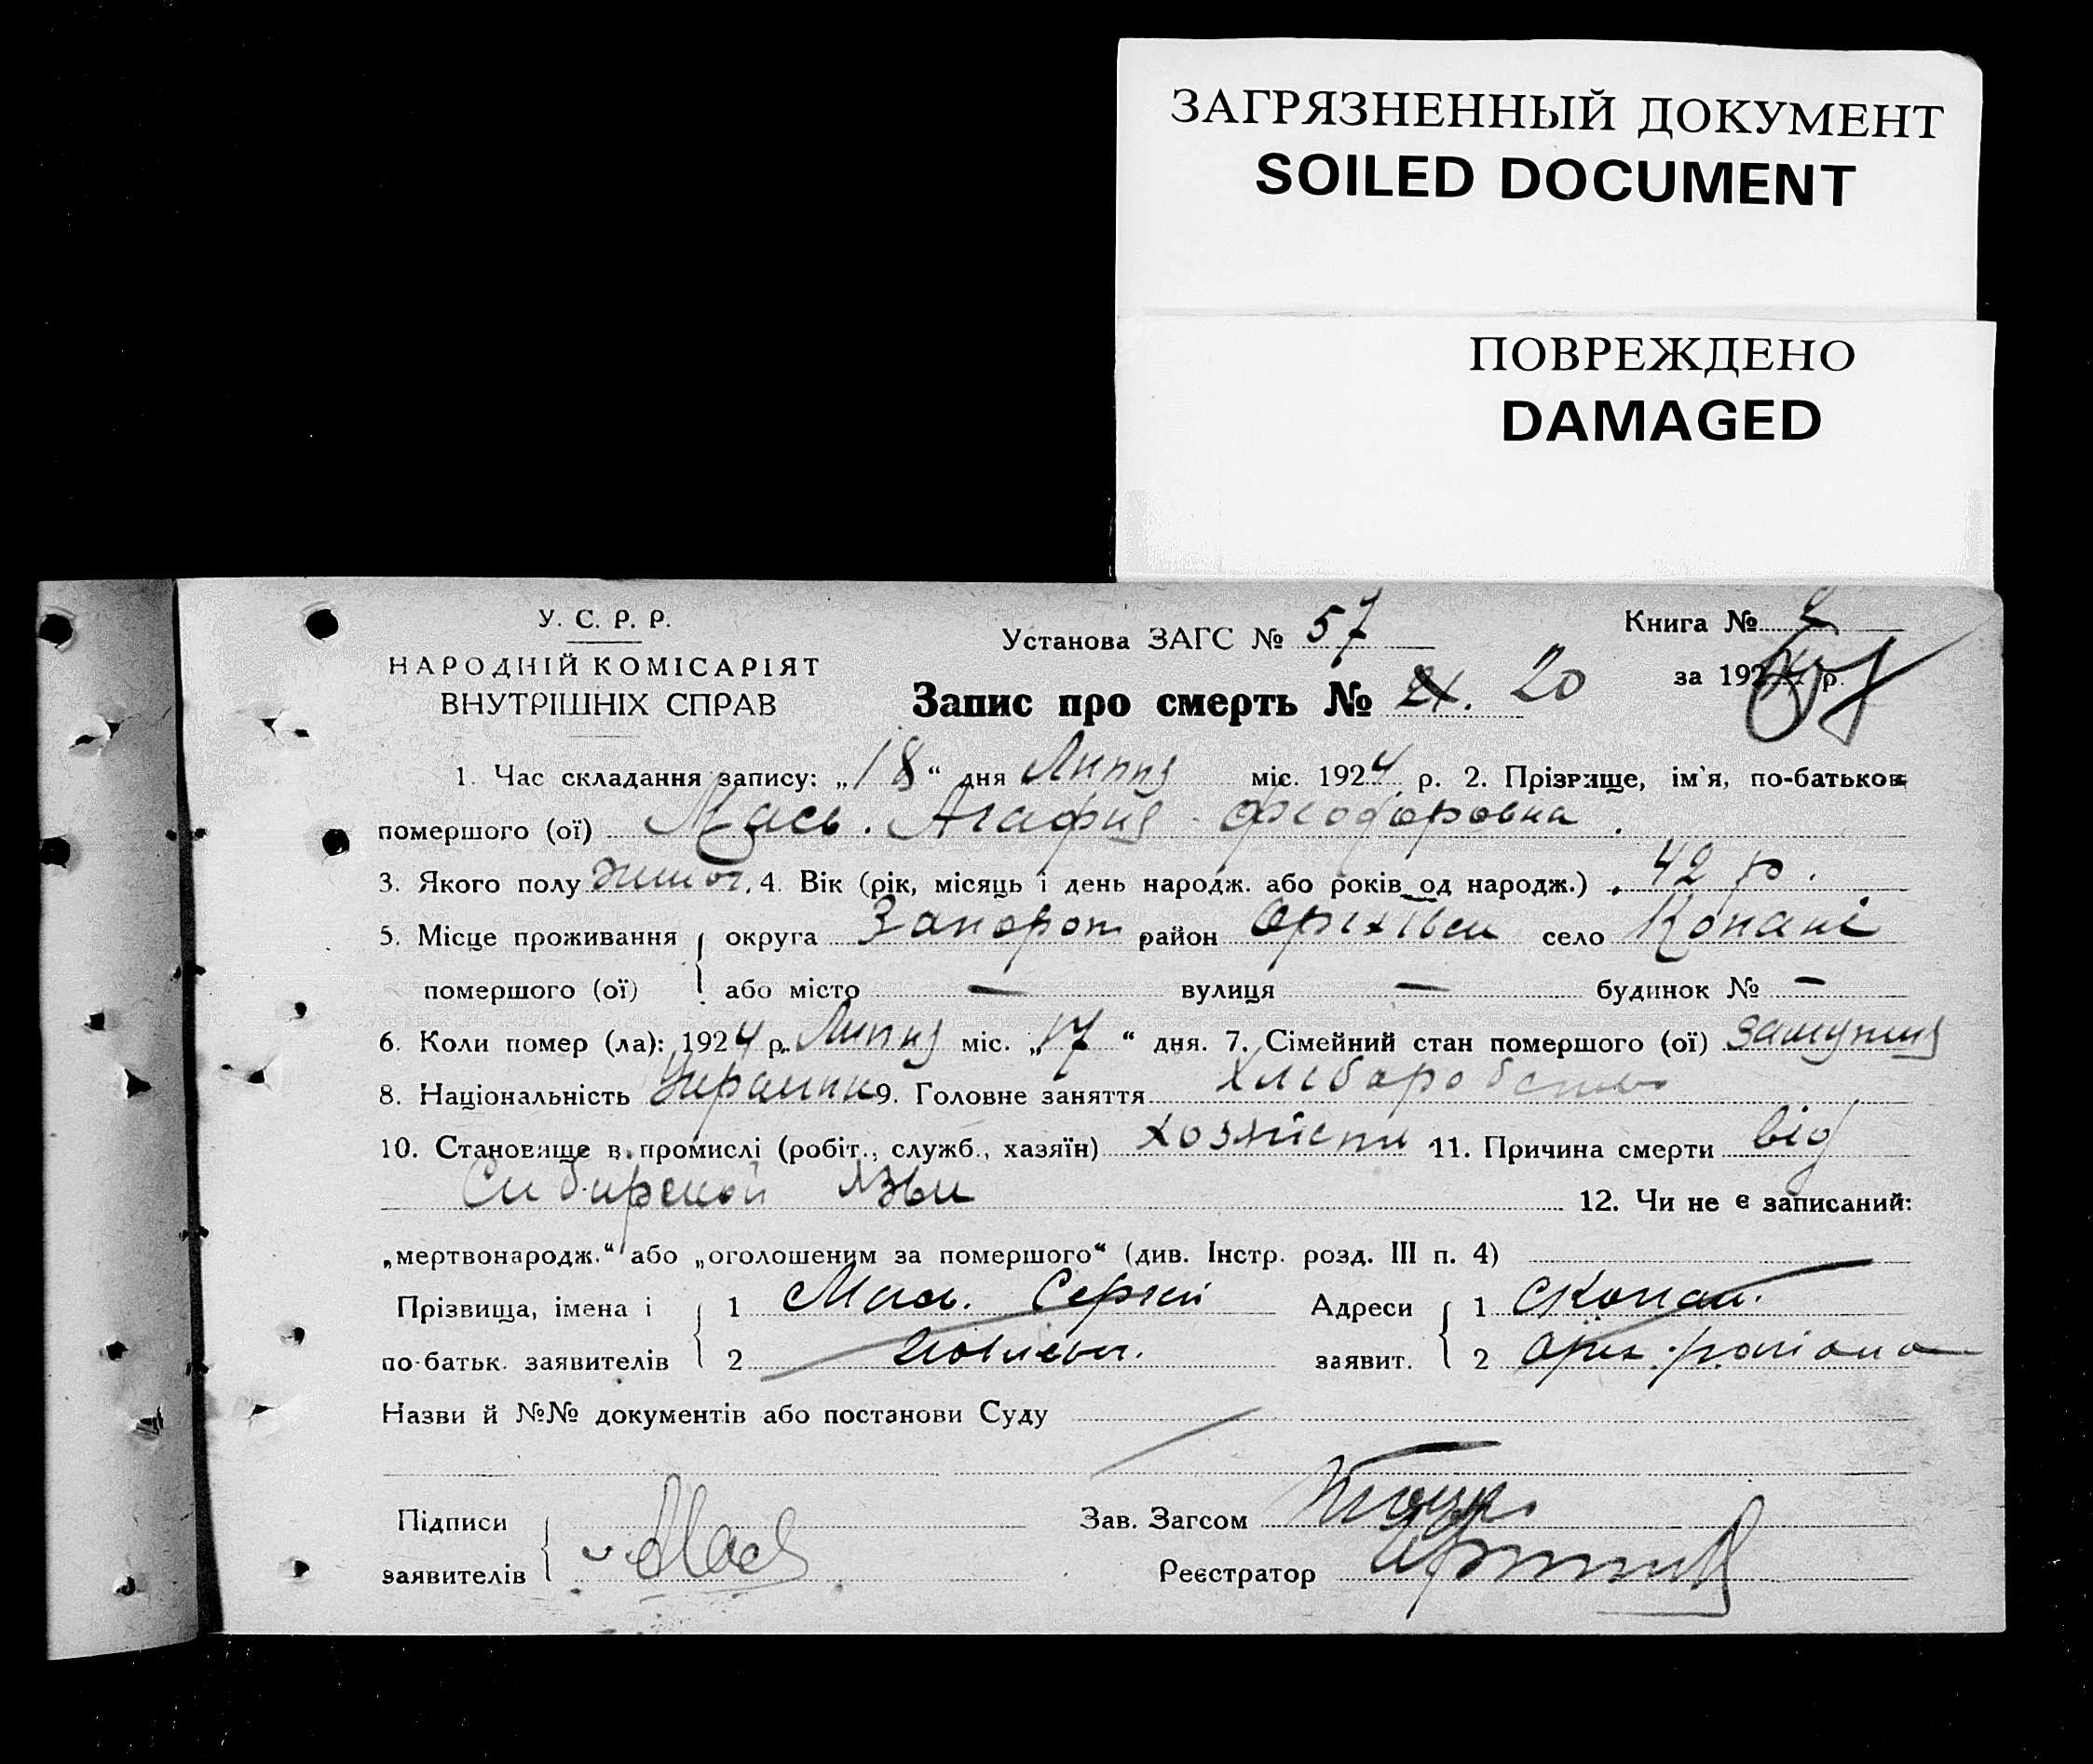 ЗАГРЯЗНЕННЫЙ ДОКУМЕНТ
SOILED DOCUMENT
ПОВРЕЖДЕНО
DAMAGED
У. С. Р. Р.
НАРОДНІЙ КОМІСАРІЯТ
ВНУТРІШНІХ СПРАВ
Установа ЗАГС № 57
Книга №
за 192 р.
Запис про смерть № 20
1. Час складання запису: „18“ дня Липня міс. 1924 р. 2. Прізвище, ім'я, по-батькові
помершого (ої) Мась. Агафия Феодоровна.
3. Якого полу жиноч. 4. Вік (рік, місяць і день народж. або років од народж.) 42 р.
5. Місце проживання округа Запорож район Оріхівськ село Копані
помершого (ої) або місто — вулиця — будинок № —
6. Коли помер (ла): 1924 р. Липня міс. „17“ дня. 7. Сімейний стан помершого (ої) замужня
8. Національність Украинк 9. Головне заняття Хлеборобство
10. Становище в промислі (робіт., служб., хазяїн) 11. Причина смерти від
Сибирской язви 12. Чи не є записаний:
„мертвонародж.“ або „оголошеним за помершого“ (див. Інстр. розд. III п. 4)
Прізвища, імена і 1 Мась. Сергій Адреси 1 с Копані.
по-батьк. заявителів 2 заявит. 2 Оріх. району
Назви й №№ документів або постанови Суду
Підписи Зав. Загсом
заявителів Мась Реєстратор